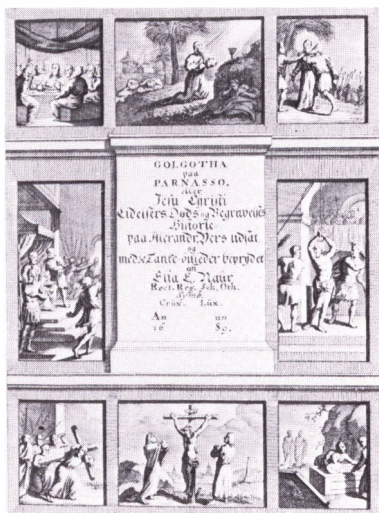 GOLGOTHA
paa
PARNASSO,
eller
Jesu Christi
Lidelsers Døds og Begravelses
Historie
paa Alexandr. Vers udsat
og
med Tanke-
beprydet
af
Elia E. Naur
Rect. Reg. Sch. Oth.
Symb.
Crux. Lux.
An no
16 89.